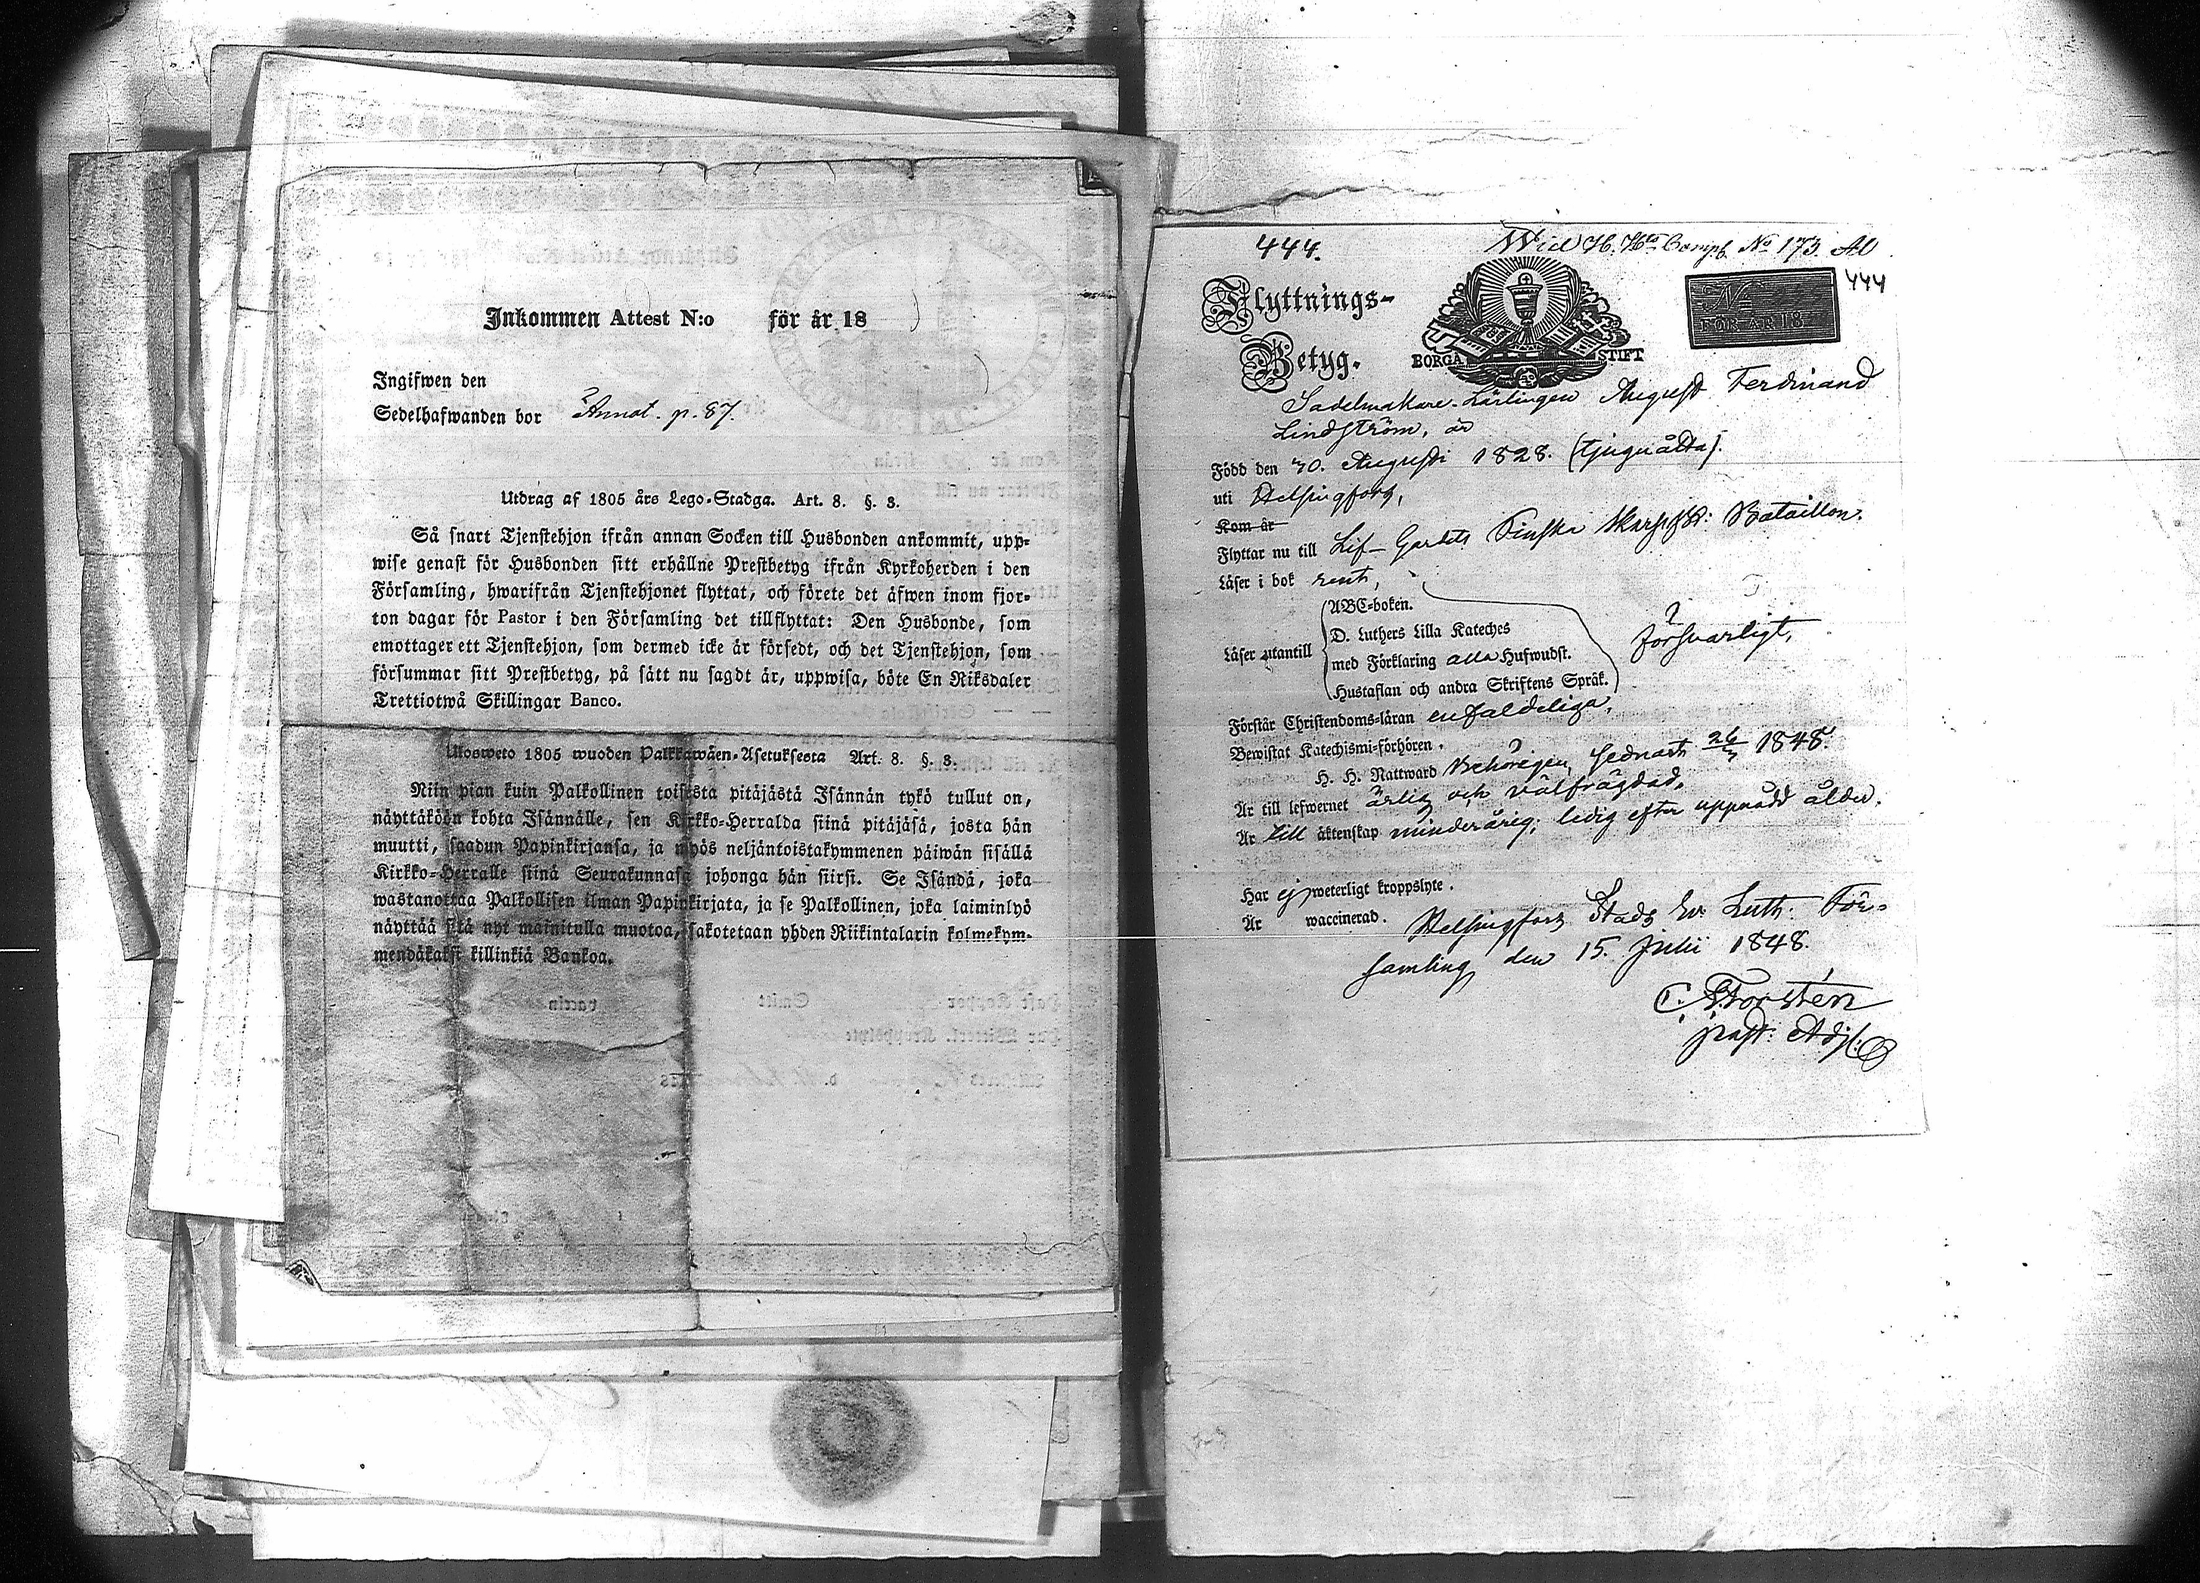 Inkommen Attest N:o för år 18
Ingifwen den
Sedelhafwanden bor Annot. p. 87.
Utdrag af 1805 års Lego-Stadga. Art. 8. §. 3.
Så snart Tjenstehjon ifrån annan Socken till Husbonden ankommit, upp-
wise genast för Husbonden sitt erhållne Prestbetyg ifrån Kyrkoherden i den
Församling, hwarifrån Tjenstehjonet flyttat, och förete det äfwen inom fjor-
ton dagar för Pastor i den Församling det tillflyttat: Den Husbonde, som
emottager ett Tjenstehjon, som dermed icke är försedt, och det Tjenstehjon, som
försummar sitt Prestbetyg, på sätt nu sagdt är, uppwisa, böte En Riksdaler
Trettiotwå Skillingar Banco.
Ulosweto 1805 wuoden Palkkawäen-Asetuksesta Art. 8. §. 3.
Niin pian kuin Palkollinen toisesta pitäjästä Isännän tykö tullut on,
näyttäköön kohta Isännälle, sen Kirkko-Herralda siinä pitäjäsä, josta hän
muutti, saadun Papinkirjansa, ja myös neljäntoistakymmenen päiwän sisällä
Kirkko-Herralle siinä Seurakunnasa johonga hän siirsi. Se Isändä, joka
wastanottaa Palkollisen ilman Papinkirjata, ja se Palkollinen, joka laiminlyö
näyttää sitä nyt mainitulla muotoa, sakotetaan yhden Riikintalarin kolmekym-
mendäkaksi killinkiä Bankoa.
444. Wid H. Comp. No 173.
444
Flyttnings-
Betyg.
BORGÅ STIFT
No
FÖR ÅR 18
Sadelmakare-Lärlingen August Ferdinand
Lindström, är
Född den 30. Augusti 1828. (tjuguåtta).
uti Helsingfors,
Kom år
Flyttar nu till Lif-Gardets Finska Skarpsk: Bataillon.
Läser i bok rent,
ABC-boken.
D. Luthers Lilla Kateches
Läser utantill
med Förklaring alla Hufwudst.
Hustaflan och andra Skriftens Språk.
försvarligt,
Förstår Christendoms-läran enfaldeliga,
Bewistat Katechismi-förhören.
H. H. Nattward behörigen, sednast 26/3 1848.
Är till lefwernet ärlig och välfrägdad.
Är till äktenskap minderårig; ledig efter uppnådd ålder.
Har ej weterligt kroppslyte.
Är waccinerad.
Helsingfors Stads Ev. Luth. För-
samling, den 15. Julii 1848.
C. Forstén
past. Adj.